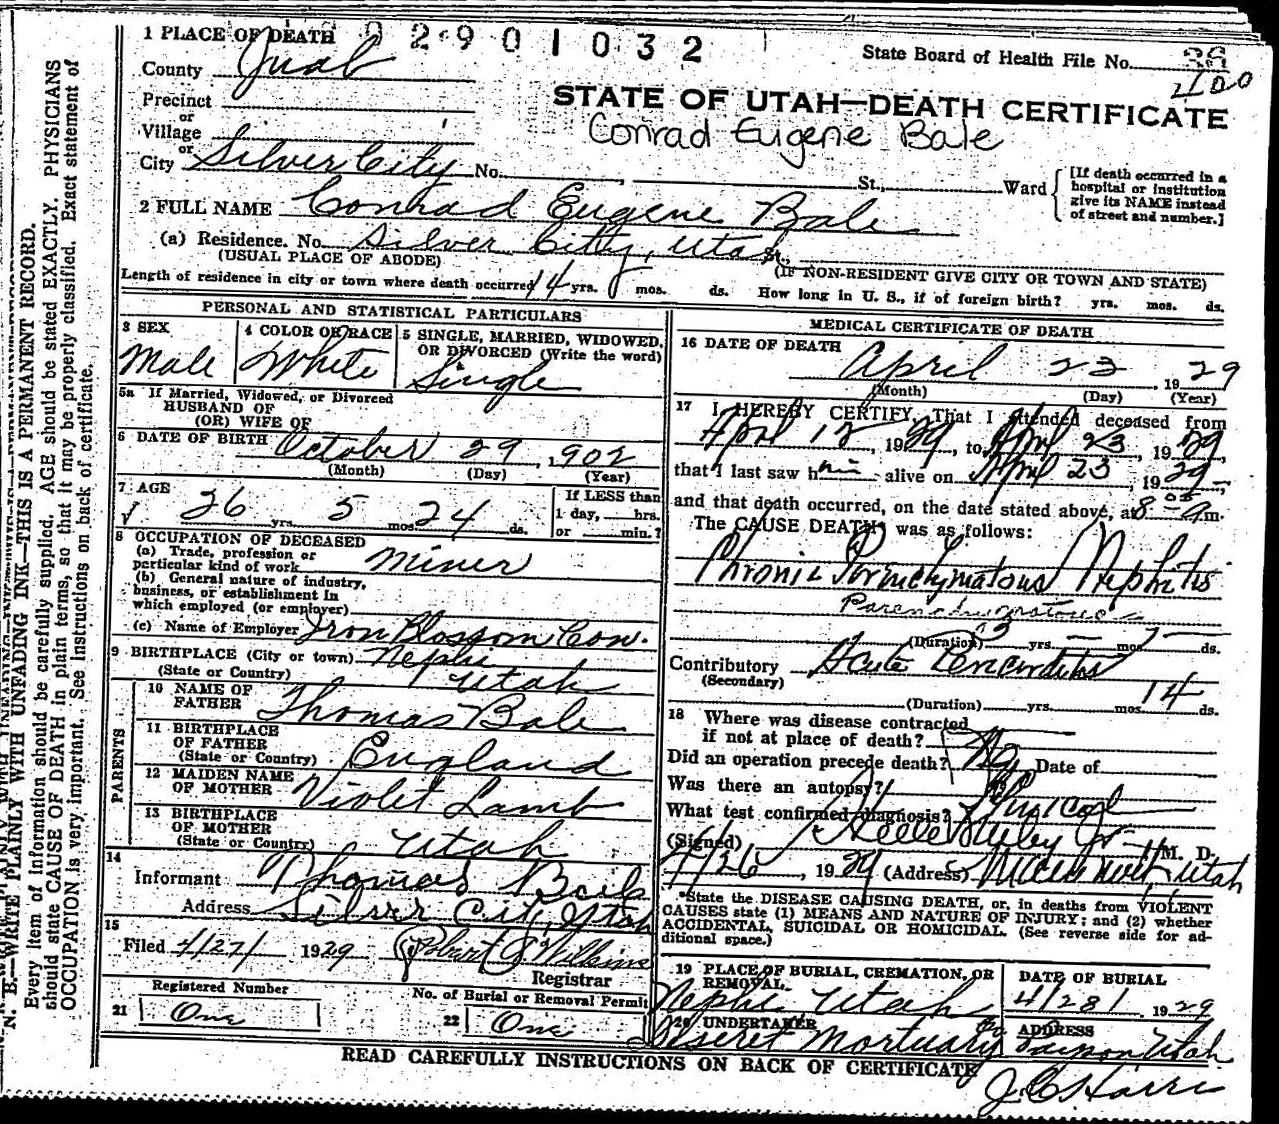 1 PLACE OF DEATH 02901032
State Board of Health File No. 38
400
County Juab
STATE OF UTAH—DEATH CERTIFICATE
Precinct
or
Village
Conrad Eugene Bale
or
City Silver City No. St., Ward
[If death occurred in a
hospital or institution
give its NAME instead
of street and number.]
2 FULL NAME Conrad Eugene Bale
(a) Residence. No. Silver City, Utah St.,
(USUAL PLACE OF ABODE) (IF NON-RESIDENT GIVE CITY OR TOWN AND STATE)
Length of residence in city or town where death occurred 14 yrs. mos. ds. How long in U. S., if of foreign birth? yrs. mos. ds.
PERSONAL AND STATISTICAL PARTICULARS
3 SEX
Male
4 COLOR OR RACE
White
5 SINGLE, MARRIED, WIDOWED,
OR DIVORCED (Write the word)
Single
5a If Married, Widowed, or Divorced
HUSBAND OF
(OR) WIFE OF
6 DATE OF BIRTH October 29, 1902
(Month) (Day) (Year)
7 AGE
26 yrs. 5 mos. 24 ds.
If LESS than
1 day, hrs.
or min.?
8 OCCUPATION OF DECEASED
(a) Trade, profession or
particular kind of work Miner
(b) General nature of industry,
business, or establishment in
which employed (or employer)
(c) Name of Employer Iron Blossom Con.
9 BIRTHPLACE (City or town) Nephi
(State or Country) Utah
PARENTS
10 NAME OF
FATHER Thomas Bale
11 BIRTHPLACE
OF FATHER
(State or Country) England
12 MAIDEN NAME
OF MOTHER Violet Lamb
13 BIRTHPLACE
OF MOTHER
(State or Country) Utah
14
Informant Thomas Bale
Address Silver City, Utah
15
Filed 4/27/ 1929 Robert S. Wilkins
Registrar
Registered Number
21 One
No. of Burial or Removal Permit
22 One
MEDICAL CERTIFICATE OF DEATH
16 DATE OF DEATH
April 23, 1929
(Month) (Day) (Year)
17 I HEREBY CERTIFY, That I attended deceased from
April 12, 1929, to April 23, 1929,
that I last saw him alive on April 23, 1929,
and that death occurred, on the date stated above, at 8 05 a.m.
The CAUSE DEATH* was as follows:
Chronic Parinchymatous Nephritis
Parenchymatous
(Duration) 3 yrs. mos. ds.
Contributory Acute
(Secondary)
(Duration) yrs. mos. 14 ds.
18 Where was disease contracted
if not at place of death?
Did an operation precede death? No Date of
Was there an autopsy? No
What test confirmed diagnosis?
(Signed) Steele Bailey Jr M. D.
4/26, 1929 (Address) Utah
*State the DISEASE CAUSING DEATH, or, in deaths from VIOLENT
CAUSES state (1) MEANS AND NATURE OF INJURY; and (2) whether
ACCIDENTAL, SUICIDAL OR HOMICIDAL. (See reverse side for ad-
ditional space.)
19 PLACE OF BURIAL, CREMATION, OR
REMOVAL
Nephi Utah
DATE OF BURIAL
4/28/, 1929
20 UNDERTAKER
Deseret Mortuary Co
ADDRESS
Payson Utah
READ CAREFULLY INSTRUCTIONS ON BACK OF CERTIFICATE
N. B.—WRITE PLAINLY WITH UNFADING INK—THIS IS A PERMANENT RECORD.
Every item of information should be carefully supplied. AGE should be stated EXACTLY. PHYSICIANS
should state CAUSE OF DEATH in plain terms, so that it may be properly classified. Exact statement of
OCCUPATION is very important. See instructions on back of certificate.